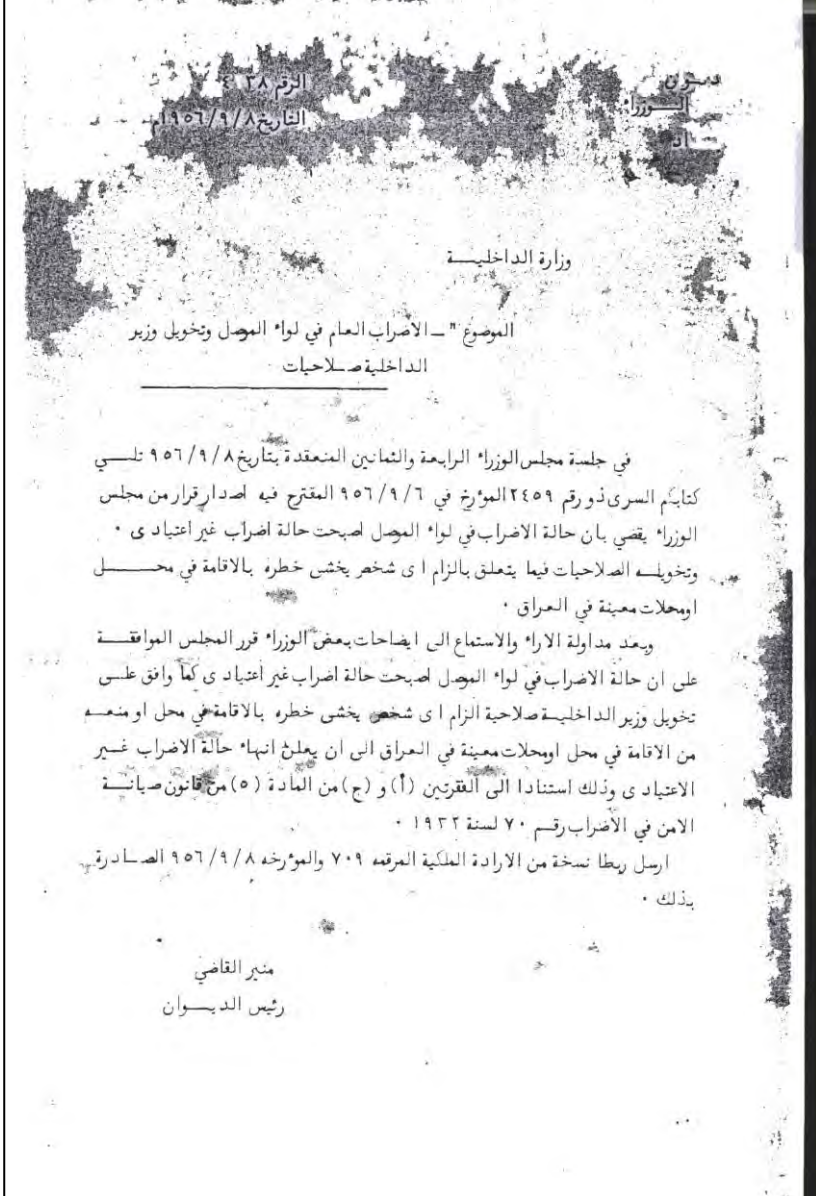 ديوان
الرقم ٤٠٣٨
الوزراء
التاريخ ١٩٥٦/٩/٨م
وزارة الداخليـــة
الموضوع " ــ الاضراب العام في لواء الموصل وتخويل وزير
الداخلية صـلاحيات
في جلسة مجلس الوزراء الرابعة والثمانين المنعقدة بتاريخ ٩٥٦/٩/٨ تلـــي
كتابكم السرى ذو رقم ٢٤٥٩ الموءرخ في ٩٥٦/٩/٦ المقترح فيه اصدار قرار من مجلس
الوزراء يقضي بان حالة الاضراب في لواء الموصل اصبحت حالة اضراب غير اعتيادى ٠
وتخويلـه الصلاحيات فيما يتعلق بالزام اى شخص يخشى خطره بالاقامة في محـــــل
اومحلات معينة في العراق ٠
وبعد مداولة الاراء والاستماع الى ايضاحات بعض الوزراء قرر المجلس الموافقـــة
على ان حالة الاضراب في لواء الموصل اصبحت حالة اضراب غير اعتيادى كما وافق علـى
تخويل وزير الداخليـة صلاحية الزام اى شخص يخشى خطره بالاقامة في محل او منعــه
من الاقامة في محل اومحلات معينة في العراق الى ان يعلن انهاء حالة الاضراب غــير
الاعتيادى وذلك استنادا الى الفقرتين (أ) و (ج) من المادة (٥) من قانون صيانـــة
الامن في الاضراب رقــم ٧٠ لسنة ١٩٣٢ ٠
ارسل ربطا نسخة من الارادة الملكية المرقمه ٧٠٩ والموءرخه ٩٥٦/٩/٨ الصــادرة
بذلك ٠
منير القاضي
رئيس الديـــوان